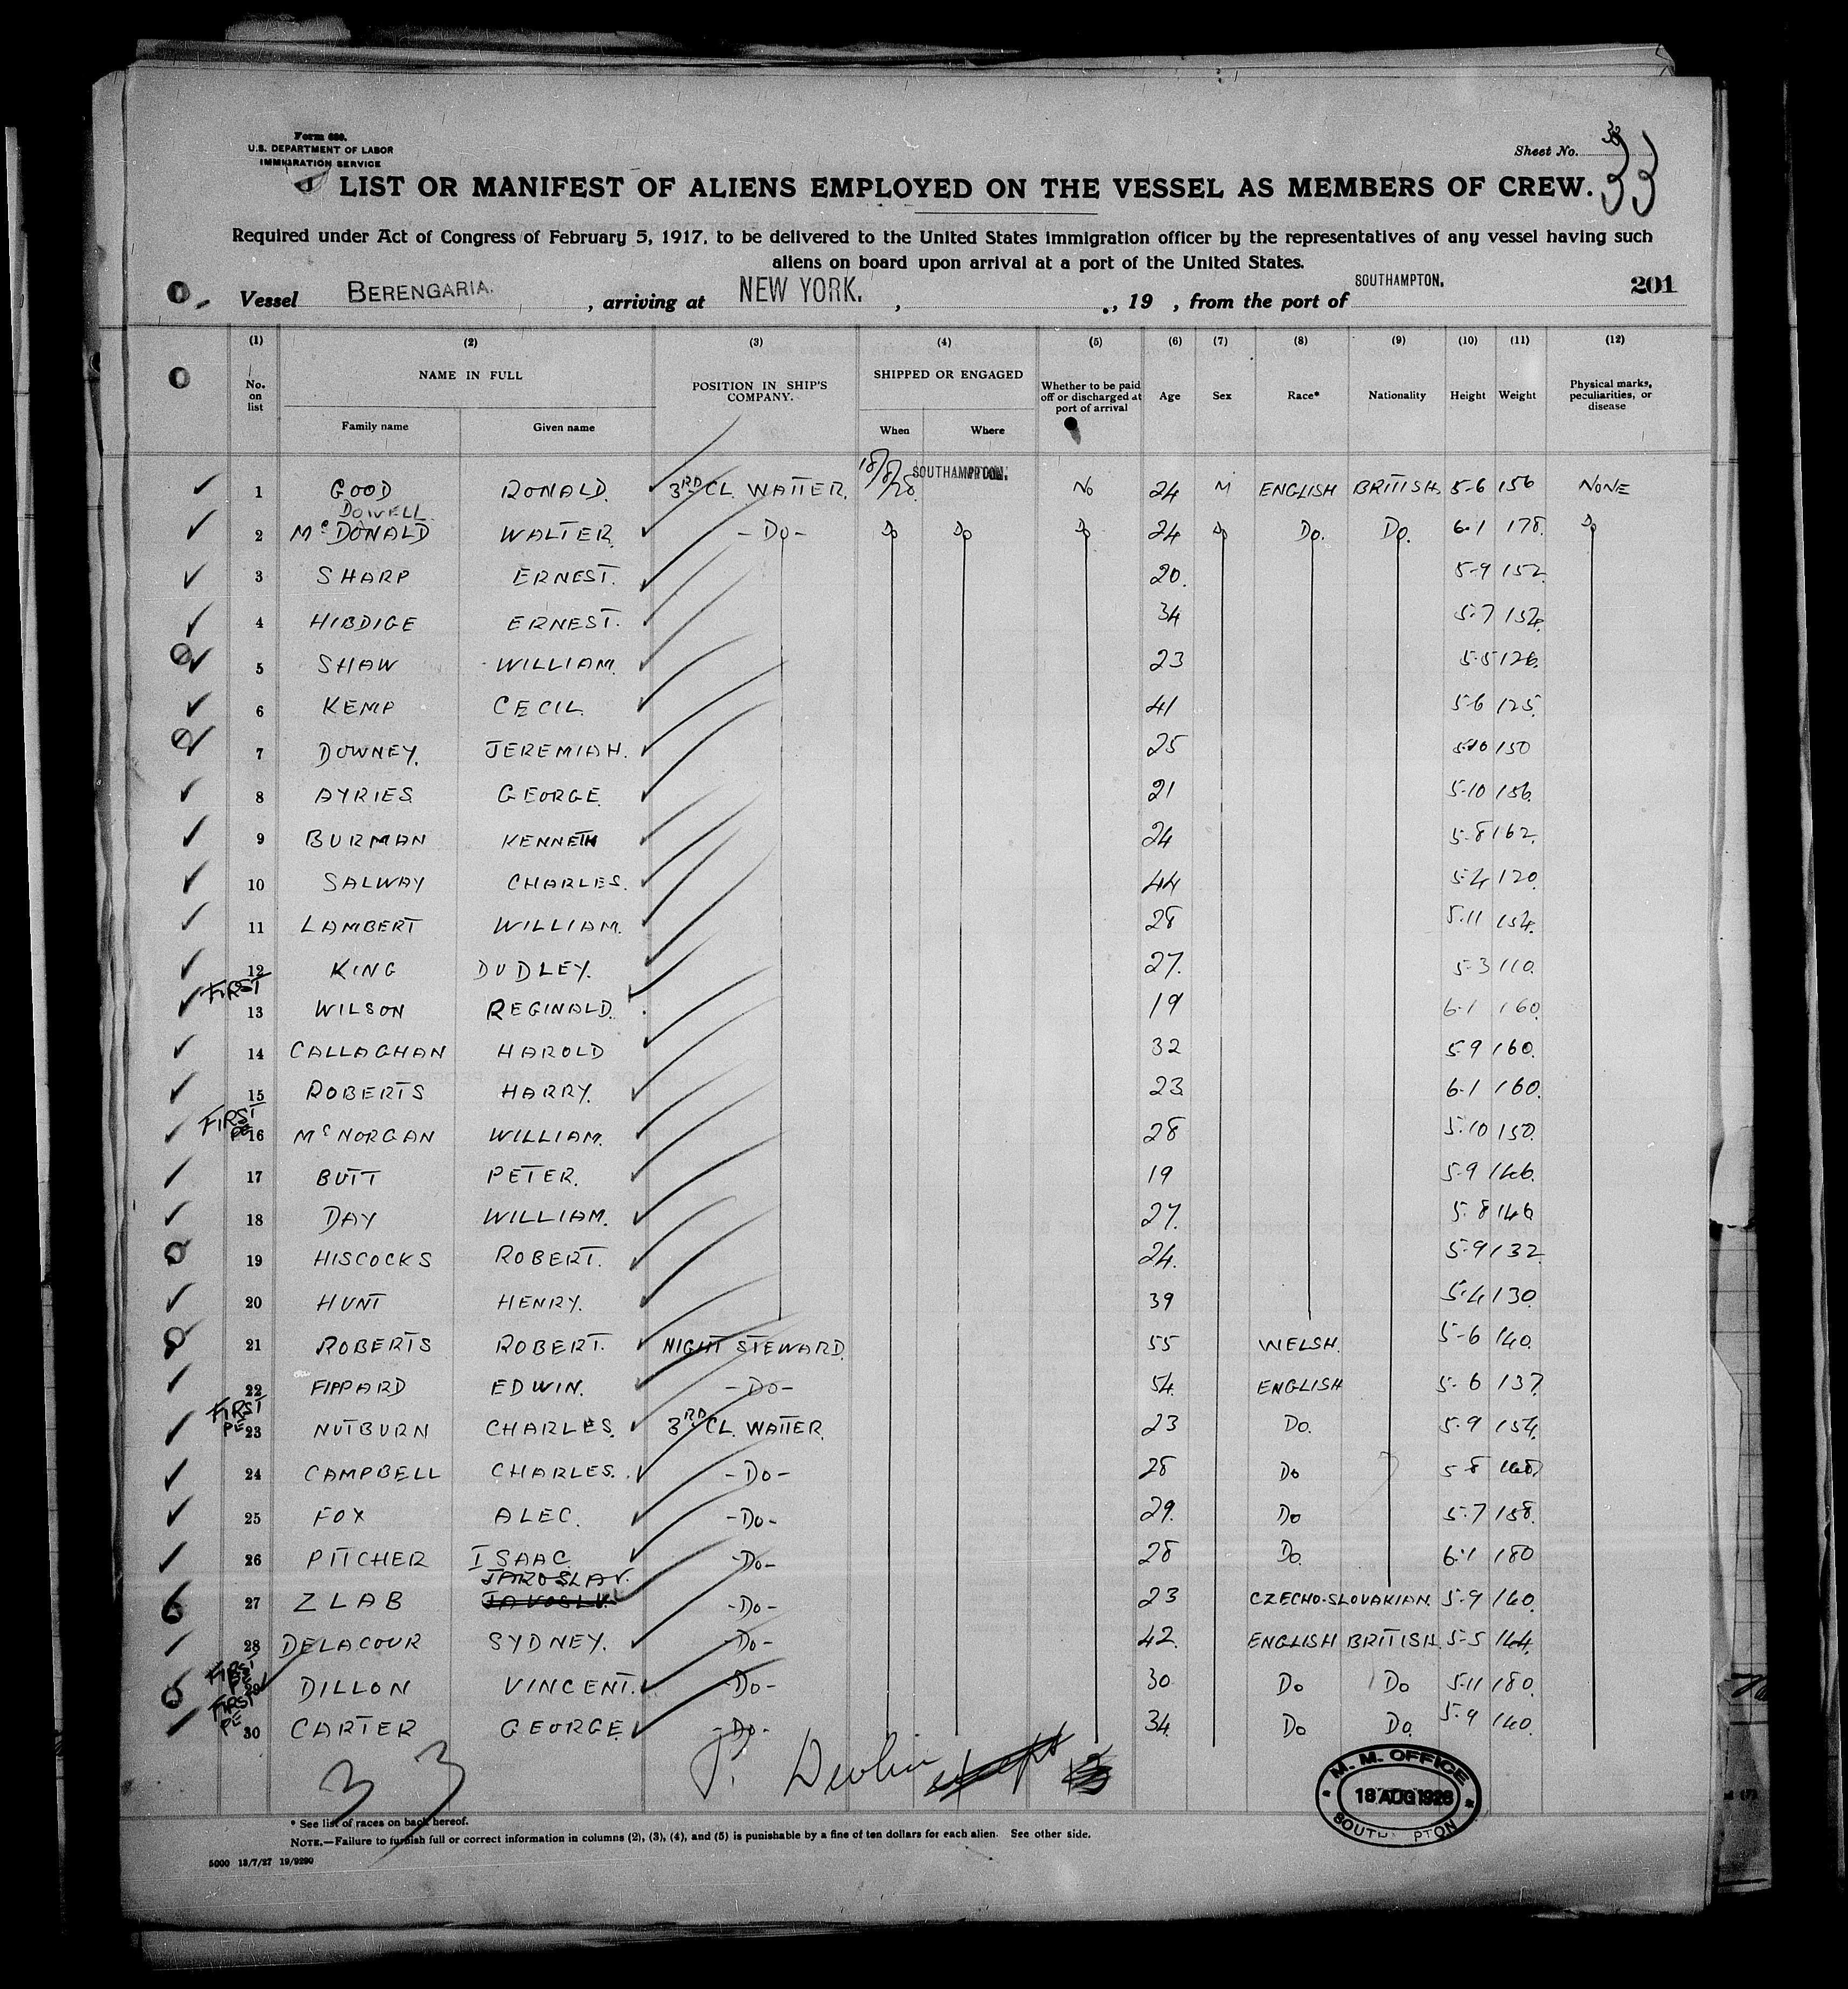 Form 680.
U.S. DEPARTMENT OF LABOR
IMMIGRATION SERVICE
Sheet No. 33
LIST OR MANIFEST OF ALIENS EMPLOYED ON THE VESSEL AS MEMBERS OF CREW.
Required under Act of Congress of February 5, 1917, to be delivered to the United States immigration officer by the representatives of any vessel having such
aliens on board upon arrival at a port of the United States.
201
Vessel BERENGARIA. , arriving at NEW YORK. , , 19 , from the port of SOUTHAMPTON.
(1) (2) (3) (4) (5) (6) (7) (8) (9) (10) (11) (12)
No. on list NAME IN FULL Family name Given name POSITION IN SHIP'S COMPANY. SHIPPED OR ENGAGED When Where Whether to be paid off or discharged at port of arrival Age Sex Race* Nationality Height Weight Physical marks, peculiarities, or disease
1 GOOD RONALD. 3RD CL. WAITER. 18/8/28 SOUTHAMPTON. No 24 M ENGLISH BRITISH 5-6 156 NONE
DOWELL
2 McDONALD WALTER. -Do- Do Do Do 24 Do Do. Do. 6-1 178. Do
3 SHARP ERNEST. 20. 5-9 152
4 HIBDIGE ERNEST. 34 5-7 154.
5 SHAW WILLIAM. 23 5-5 126.
6 KEMP CECIL. 41 5-6 125.
7 DOWNEY. JEREMIAH. 25 5-10 150
8 AYRIES GEORGE. 21 5-10 156.
9 BURMAN KENNETH 24 5-8 162.
10 SALWAY CHARLES. 44 5-4 120.
11 LAMBERT WILLIAM. 28 5-11 154.
12 KING DUDLEY. 27. 5-3 110.
FIRST
13 WILSON REGINALD. 19 6-1 160.
14 CALLAGHAN HAROLD 32 5-9 160.
15 ROBERTS HARRY. 23 6-1 160.
FIRST
16 McNORGAN WILLIAM. 28 5-10 150.
17 BUTT PETER. 19 5-9 146.
18 DAY WILLIAM. 27. 5-8 146
19 HISCOCKS ROBERT. 24. 5-9 132
20 HUNT HENRY. 39 5-4 130.
21 ROBERTS ROBERT. NIGHT STEWARD. 55 WELSH. 5-6 140.
22 FIPPARD EDWIN. -Do- 54. ENGLISH 5-6 137
FIRST
PE 23 NUTBURN CHARLES. 3RD CL. WAITER. 23 Do. 5-9 154.
24 CAMPBELL CHARLES. -Do- 28 Do 5-8
25 FOX ALEC. -Do- 29. Do 5-7 158.
26 PITCHER ISAAC. -Do- 28 Do. 6-1 180
JAROSLAV.
27 ZLAB -Do- 23 CZECHO-SLOVAKIAN. 5-9 160.
28 DELACOUR SYDNEY. -Do- 42. ENGLISH BRITISH. 5-5 144.
FIRST
PE DILLON VINCENT. -Do- 30 Do Do 5-11 180.
FIRST
PE 30 CARTER GEORGE. -Do- 34. Do Do. 5-9 140.
33 J. Devlin
M. M. OFFICE
18 AUG 1928
SOUTH PTON
* See list of races on back hereof.
NOTE.—Failure to furnish full or correct information in columns (2), (3), (4), and (5) is punishable by a fine of ten dollars for each alien. See other side.
5000 18/7/27 19/9290